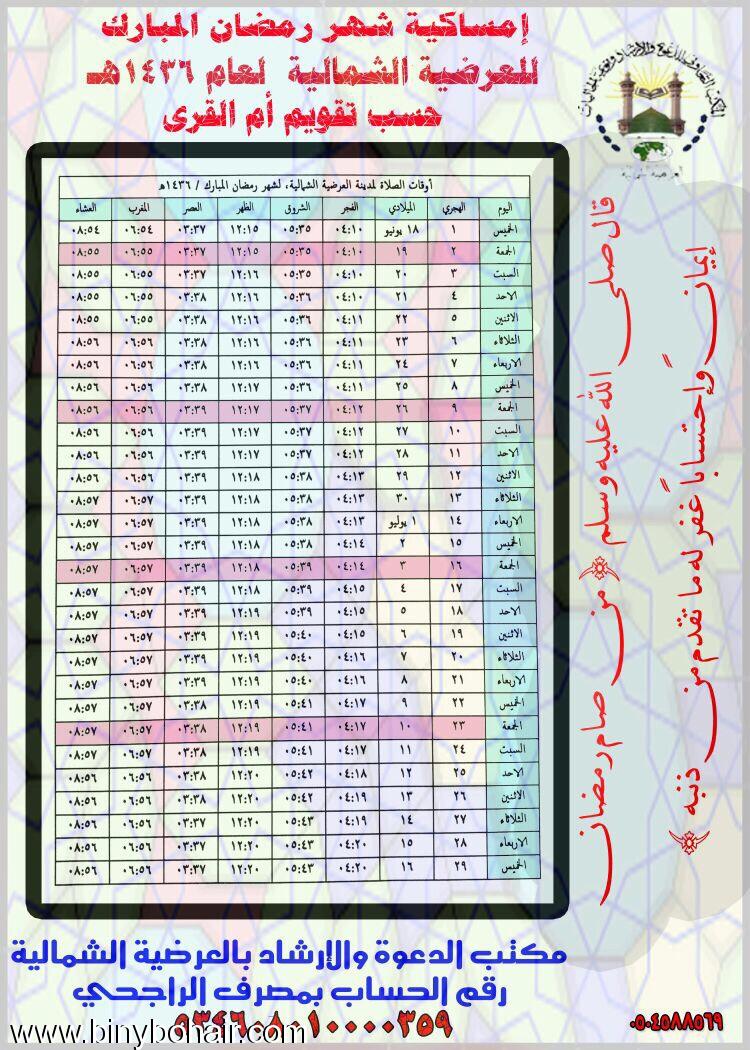 إمساكية شهر رمضان المبارك
للعرضية الشمالية لعام ١٤٣٦هـ
حسب تقويم أم القرى
أوقات الصلاة لمدينة العرضية الشمالية، لشهر رمضان المبارك / ١٤٣٦هـ
اليوم الهجري الميلادي الفجر الشروق الظهر العصر المغرب العشاء
الخميس ١ ١٨ يونيو ٠٤:١٠ ٠٥:٣٥ ١٢:١٥ ٠٣:٣٧ ٠٦:٥٤ ٠٨:٥٤
الجمعة ٢ ١٩ ٠٤:١٠ ٠٥:٣٥ ١٢:١٥ ٠٣:٣٧ ٠٦:٥٥ ٠٨:٥٥
السبت ٣ ٢٠ ٠٤:١٠ ٠٥:٣٥ ١٢:١٦ ٠٣:٣٧ ٠٦:٥٥ ٠٨:٥٥
الاحد ٤ ٢١ ٠٤:١٠ ٠٥:٣٦ ١٢:١٦ ٠٣:٣٨ ٠٦:٥٥ ٠٨:٥٥
الاثنين ٥ ٢٢ ٠٤:١١ ٠٥:٣٦ ١٢:١٦ ٠٣:٣٨ ٠٦:٥٥ ٠٨:٥٥
الثلاثاء ٦ ٢٣ ٠٤:١١ ٠٥:٣٦ ١٢:١٦ ٠٣:٣٨ ٠٦:٥٦ ٠٨:٥٦
الاربعاء ٧ ٢٤ ٠٤:١١ ٠٥:٣٦ ١٢:١٦ ٠٣:٣٨ ٠٦:٥٦ ٠٨:٥٦
الخميس ٨ ٢٥ ٠٤:١١ ٠٥:٣٧ ١٢:١٧ ٠٣:٣٨ ٠٦:٥٦ ٠٨:٥٦
الجمعة ٩ ٢٦ ٠٤:١٢ ٠٥:٣٧ ١٢:١٧ ٠٣:٣٩ ٠٦:٥٦ ٠٨:٥٦
السبت ١٠ ٢٧ ٠٤:١٢ ٠٥:٣٧ ١٢:١٧ ٠٣:٣٩ ٠٦:٥٦ ٠٨:٥٦
الاحد ١١ ٢٨ ٠٤:١٢ ٠٥:٣٨ ١٢:١٧ ٠٣:٣٩ ٠٦:٥٦ ٠٨:٥٦
الاثنين ١٢ ٢٩ ٠٤:١٣ ٠٥:٣٨ ١٢:١٧ ٠٣:٣٩ ٠٦:٥٦ ٠٨:٥٦
الثلاثاء ١٣ ٣٠ ٠٤:١٣ ٠٥:٣٨ ١٢:١٨ ٠٣:٣٩ ٠٦:٥٧ ٠٨:٥٧
الاربعاء ١٤ ١ يوليو ٠٤:١٣ ٠٥:٣٨ ١٢:١٨ ٠٣:٣٩ ٠٦:٥٧ ٠٨:٥٧
الخميس ١٥ ٢ ٠٤:١٤ ٠٥:٣٨ ١٢:١٨ ٠٣:٣٩ ٠٦:٥٧ ٠٨:٥٧
الجمعة ١٦ ٣ ٠٤:١٤ ٠٥:٣٩ ١٢:١٨ ٠٣:٣٩ ٠٦:٥٧ ٠٨:٥٧
السبت ١٧ ٤ ٠٤:١٥ ٠٥:٣٩ ١٢:١٨ ٠٣:٣٩ ٠٦:٥٧ ٠٨:٥٧
الاحد ١٨ ٥ ٠٤:١٥ ٠٥:٣٩ ١٢:١٩ ٠٣:٣٩ ٠٦:٥٧ ٠٨:٥٧
الاثنين ١٩ ٦ ٠٤:١٥ ٠٥:٤٠ ١٢:١٩ ٠٣:٣٩ ٠٦:٥٧ ٠٨:٥٧
الثلاثاء ٢٠ ٧ ٠٤:١٦ ٠٥:٤٠ ١٢:١٩ ٠٣:٣٩ ٠٦:٥٧ ٠٨:٥٧
الاربعاء ٢١ ٨ ٠٤:١٦ ٠٥:٤٠ ١٢:١٩ ٠٣:٣٩ ٠٦:٥٧ ٠٨:٥٧
الخميس ٢٢ ٩ ٠٤:١٧ ٠٥:٤١ ١٢:١٩ ٠٣:٣٨ ٠٦:٥٧ ٠٨:٥٧
الجمعة ٢٣ ١٠ ٠٤:١٧ ٠٥:٤١ ١٢:١٩ ٠٣:٣٨ ٠٦:٥٧ ٠٨:٥٧
السبت ٢٤ ١١ ٠٤:١٧ ٠٥:٤١ ١٢:١٩ ٠٣:٣٨ ٠٦:٥٧ ٠٨:٥٧
الاحد ٢٥ ١٢ ٠٤:١٨ ٠٥:٤٢ ١٢:٢٠ ٠٣:٣٨ ٠٦:٥٦ ٠٨:٥٦
الاثنين ٢٦ ١٣ ٠٤:١٩ ٠٥:٤٢ ١٢:٢٠ ٠٣:٣٨ ٠٦:٥٦ ٠٨:٥٦
الثلاثاء ٢٧ ١٤ ٠٤:١٩ ٠٥:٤٣ ١٢:٢٠ ٠٣:٣٧ ٠٦:٥٦ ٠٨:٥٦
الاربعاء ٢٨ ١٥ ٠٤:٢٠ ٠٥:٤٣ ١٢:٢٠ ٠٣:٣٧ ٠٦:٥٦ ٠٨:٥٦
الخميس ٢٩ ١٦ ٠٤:٢٠ ٠٥:٤٣ ١٢:٢٠ ٠٣:٣٧ ٠٦:٥٦ ٠٨:٥٦
قال صلى الله عليه وسلم من صام رمضان
إيمان وإحتساباً غفر له ما تقدم من ذنبه
مكتب الدعوة والإرشاد بالعرضية الشمالية
رقم الحساب بمصرف الراجحي
٠٥٠٤٥٨٨٥٦٩
www.binybohair.com